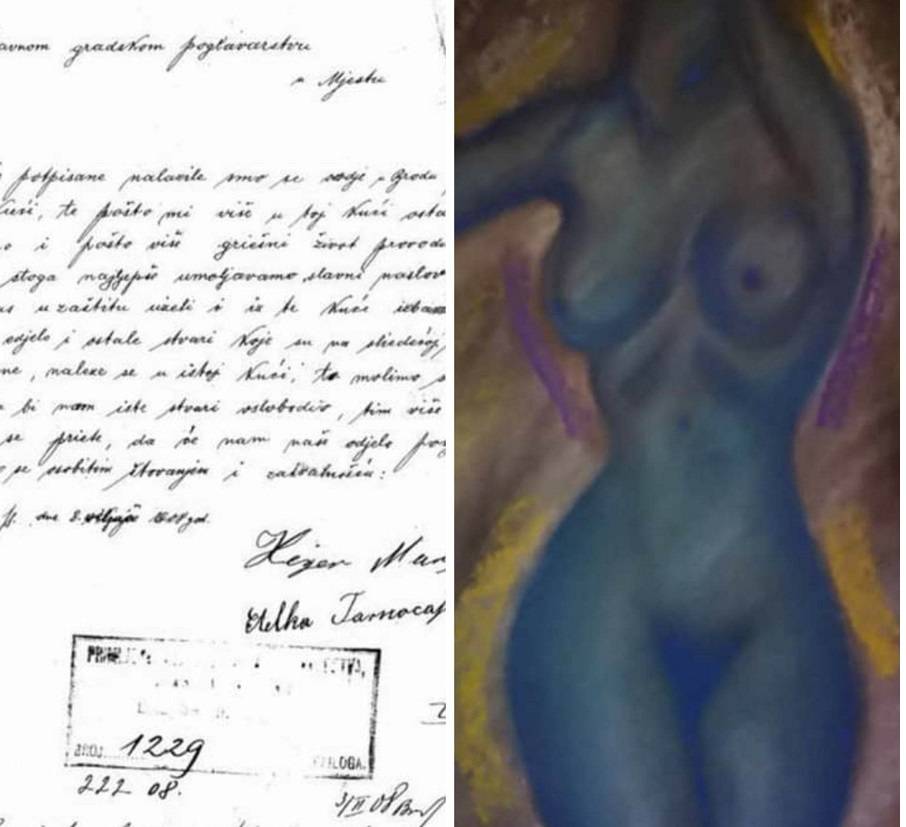 gradskom poglavarstvu
u Mjestu
potpisane nalazile smo se ovdje u Brodu
kući, te pošto mi više u toj kući osta
i pošto više griešni život provod
stoga najljepše umoljavamo slavni naslov
u zaštitu uzeli i iz te kuće izbav
odjelo i ostale stvari koje su na sliedećoj
ne, nalaze se u istoj kući, to molimo
bi nam iste stvari oslobodio, tim više
se priete, da će nam naše odjelo
se osobitim štovanjem i zahvalnošću:
dne 2. 1908 god.
Mar
Etelka Tarnocap
BROJ 1229 PRILOGA.
222 08.
3/II 08